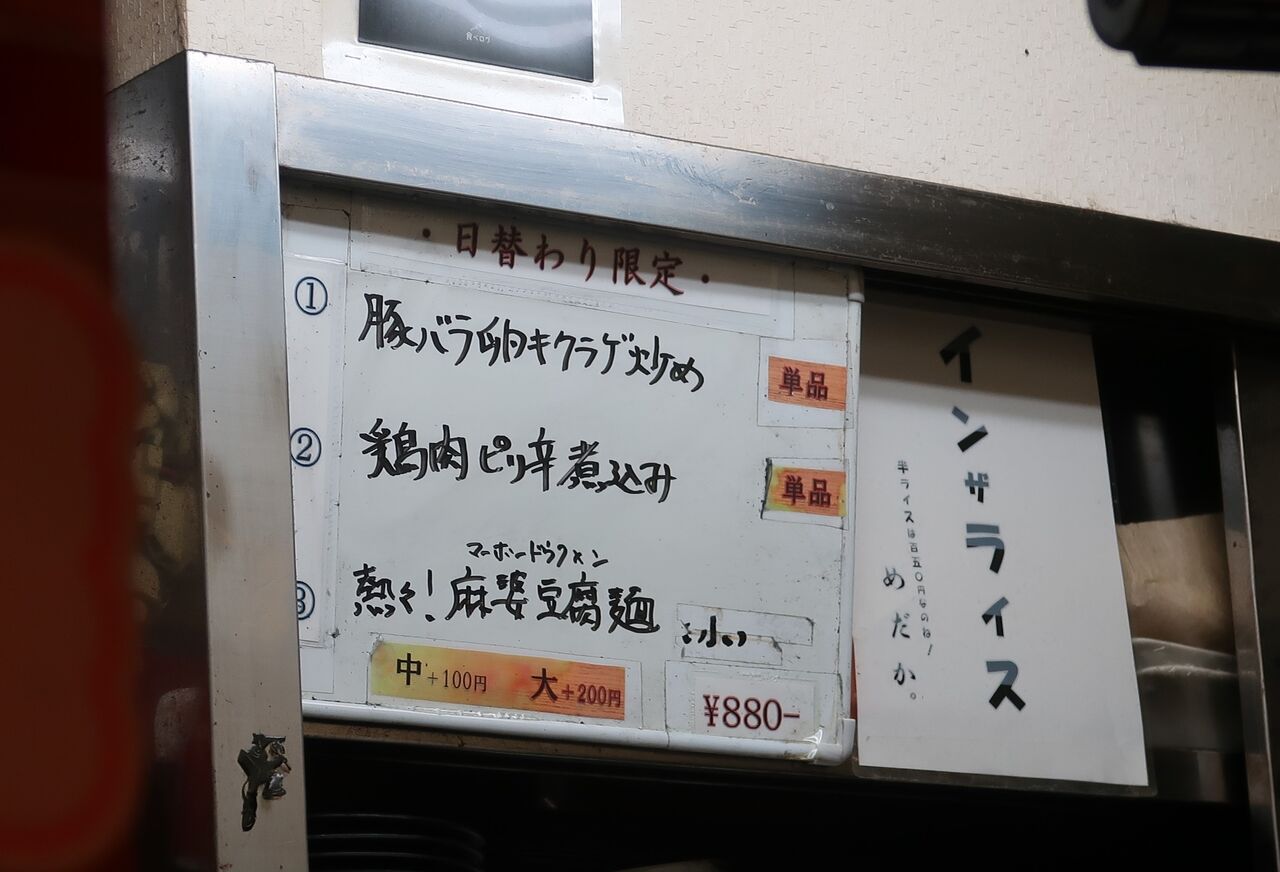 食べログ
・日替わり限定・
① 豚バラ卵キクラゲ炒め
単品
② 鶏肉ピリ辛煮込み
単品
マーボードウフメン
③ 熱々!麻婆豆腐麺
小
中+100円 大+200円
¥880-
インザライス
半ライスは百五〇円なのね!
めだか。